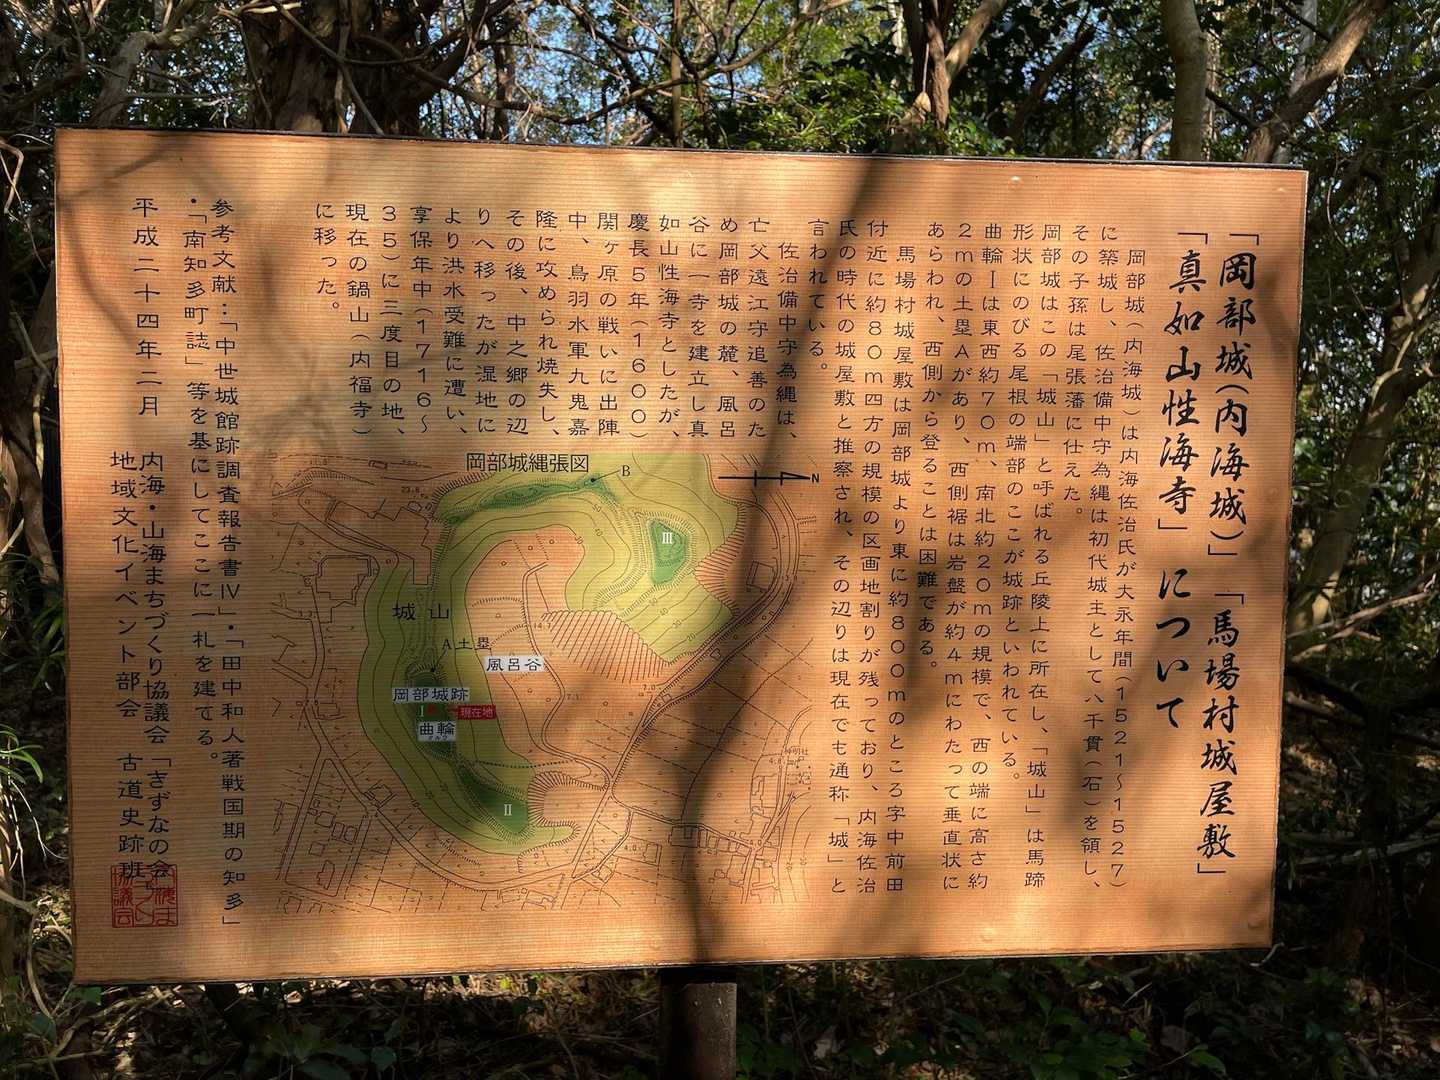 「岡部城(内海城)」「馬場村城屋敷」
「真如山性海寺」について
岡部城(内海城)は内海佐治氏が大永年間(1521～1527)
に築城し、佐治備中守為縄は初代城主として八千貫(石)を領し、
その子孫は尾張藩に仕えた。
岡部城はこの「城山」と呼ばれる丘陵上に所在し、「城山」は馬蹄
形状にのびる尾根の端部のここが城跡といわれている。
曲輪Ⅰは東西約70m、南北約20mの規模で、西の端に高さ約
2mの土塁Aがあり、西側裾は岩盤が約4mにわたって垂直状に
あらわれ、西側から登ることは困難である。
馬場村城屋敷は岡部城より東に約800mのところ字中前田
付近に約80m四方の規模の区画地割りが残っており、内海佐治
氏の時代の城屋敷と推察され、その辺りは現在でも通称「城」と
言われている。
佐治備中守為縄は、
亡父遠江守追善のた
め岡部城の麓、風呂
谷に一寺を建立し真
如山性海寺としたが、
慶長5年(1600)
関ヶ原の戦いに出陣
中、鳥羽水軍九鬼嘉
隆に攻められ焼失し、
その後、中之郷の辺
りへ移ったが湿地に
より洪水受難に遭い、
享保年中(1716～
35)に三度目の地、
現在の鍋山(内福寺)
に移った。
参考文献:「中世城館跡調査報告書Ⅳ」・「田中和人著戦国期の知多」
・「南知多町誌」等を基にしてここに一札を建てる。
平成二十四年二月
内海・山海まちづくり協議会「きずなの会」
地域文化イベント部会 古道史跡班
岡部城縄張図
B
N
Ⅲ
城山
A土塁
風呂谷
岡部城跡
Ⅰ
現在地
曲輪
クルワ
Ⅱ